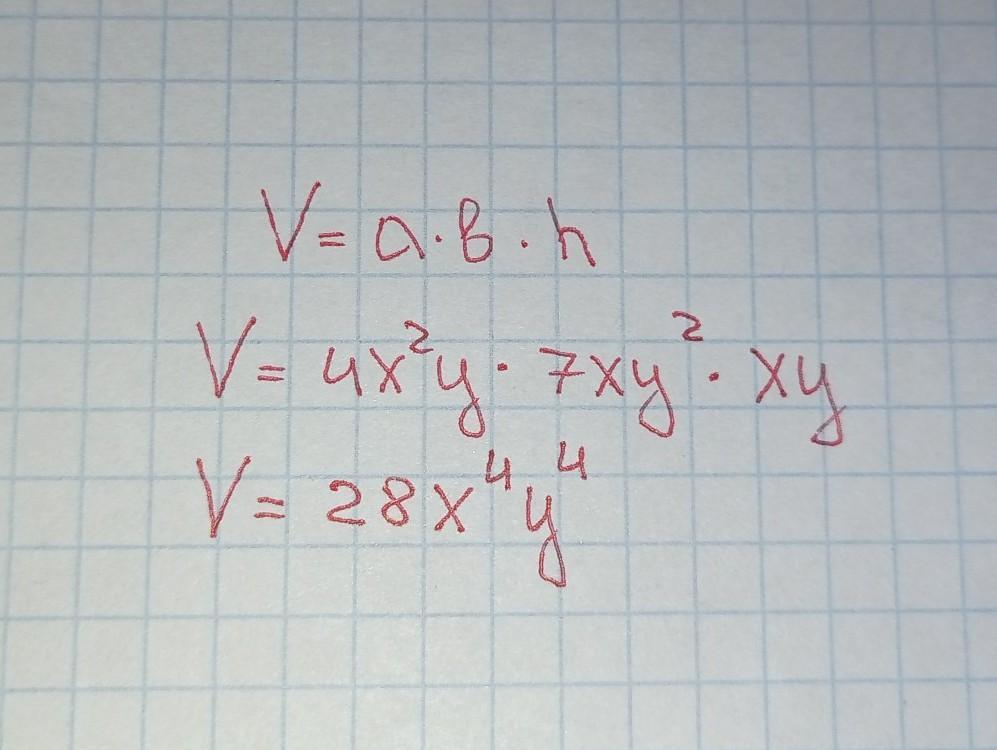 V = a · b · h
V = 4x²y · 7xy² · xy
V = 28x⁴y⁴